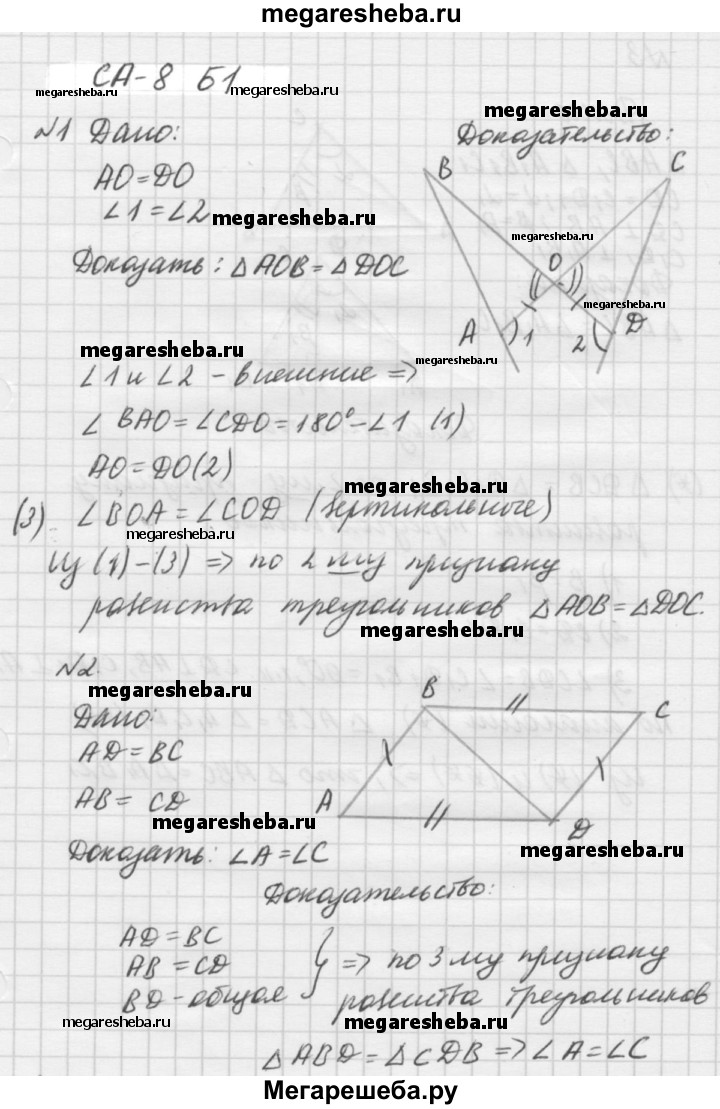 megaresheba.ru
СА-8 Б1
megaresheba.ru megaresheba.ru
megaresheba.ru
№1 Дано:
Доказательство:
AO=DO
∠1=∠2
megaresheba.ru
Доказать: △AOB=△DOC
B
C
megaresheba.ru
O
megaresheba.ru
A
1
2
D
megaresheba.ru
megaresheba.ru
∠1 и ∠2 - внешние =>
∠BAO=∠CDO=180°-∠1 (1)
AO=DO(2)
megaresheba.ru
(3) ∠BOA=∠COD (вертикальные)
megaresheba.ru
Из (1)-(3) => по 2 му признаку
равенства треугольников △AOB=△DOC.
megaresheba.ru
№2.
megaresheba.ru
Дано:
AD=BC
AB=CD
megaresheba.ru
B
C
A
D
megaresheba.ru
Доказать: ∠A=∠C
Доказательство:
AD=BC
AB=CD
BD-общая
} => по 3 му признаку
равенства треугольников
megaresheba.ru
megaresheba.ru
△ABD=△CDB=>∠A=∠C
Мегарешеба.ру